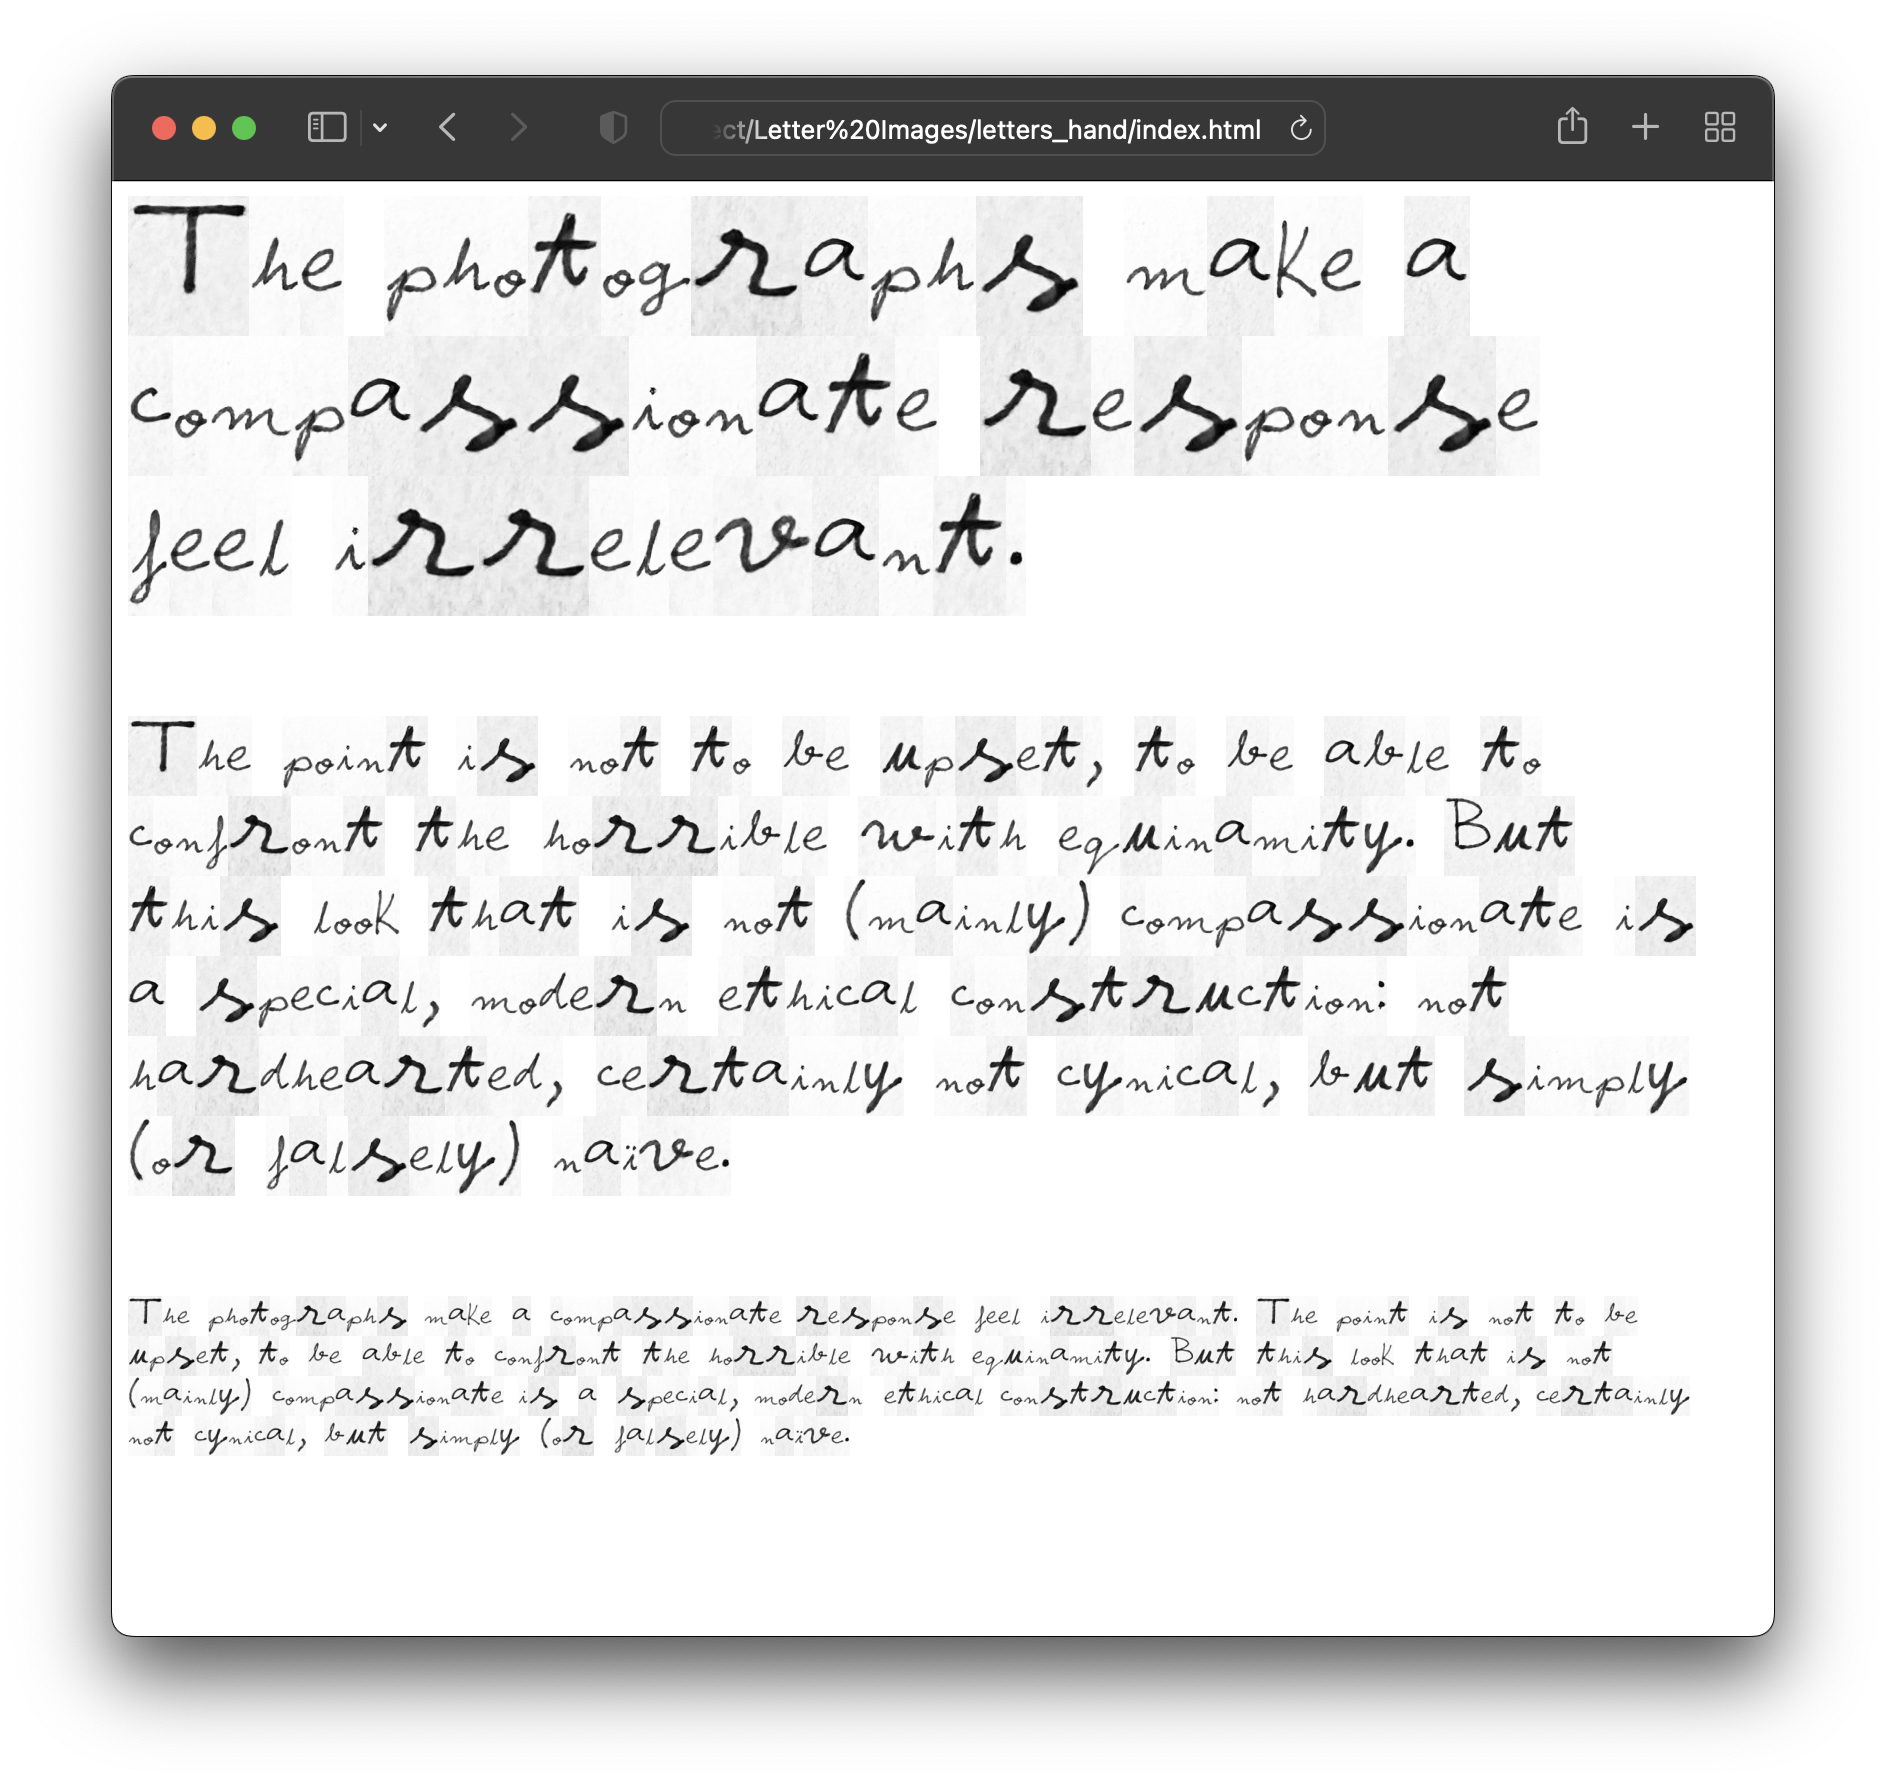 ect/Letter%20Images/letters_hand/index.html
The photographs make a
compassionate response
feel irrelevant.
The point is not to be upset, to be able to
confront the horrible with equinamity. But
this look that is not (mainly) compassionate is
a special, modern ethical construction: not
hardhearted, certainly not cynical, but simply
(or falsely) naïve.
The photographs make a compassionate response feel irrelevant. The point is not to be
upset, to be able to confront the horrible with equinamity. But this look that is not
(mainly) compassionate is a special, modern ethical construction: not hardhearted, certainly
not cynical, but simply (or falsely) naïve.